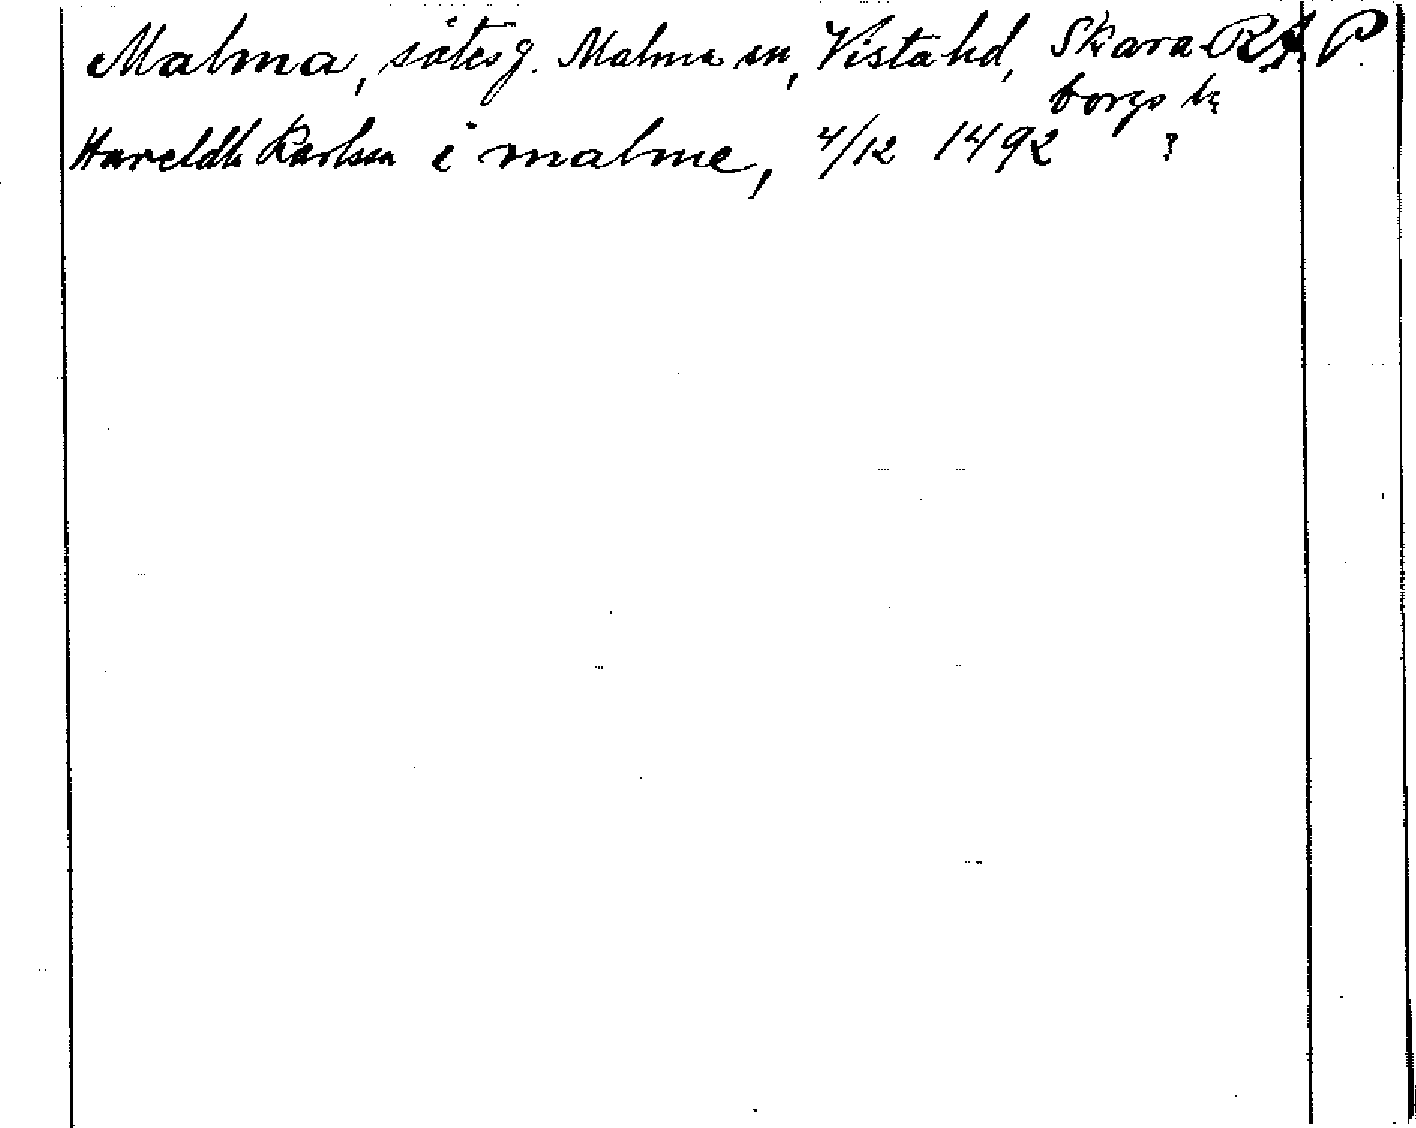 Malma, sätesg. Malma sn, Vista hd, Skara- RAP.
borgs lz
Hareldh Karlsen i malme, 4/12 1492 ?